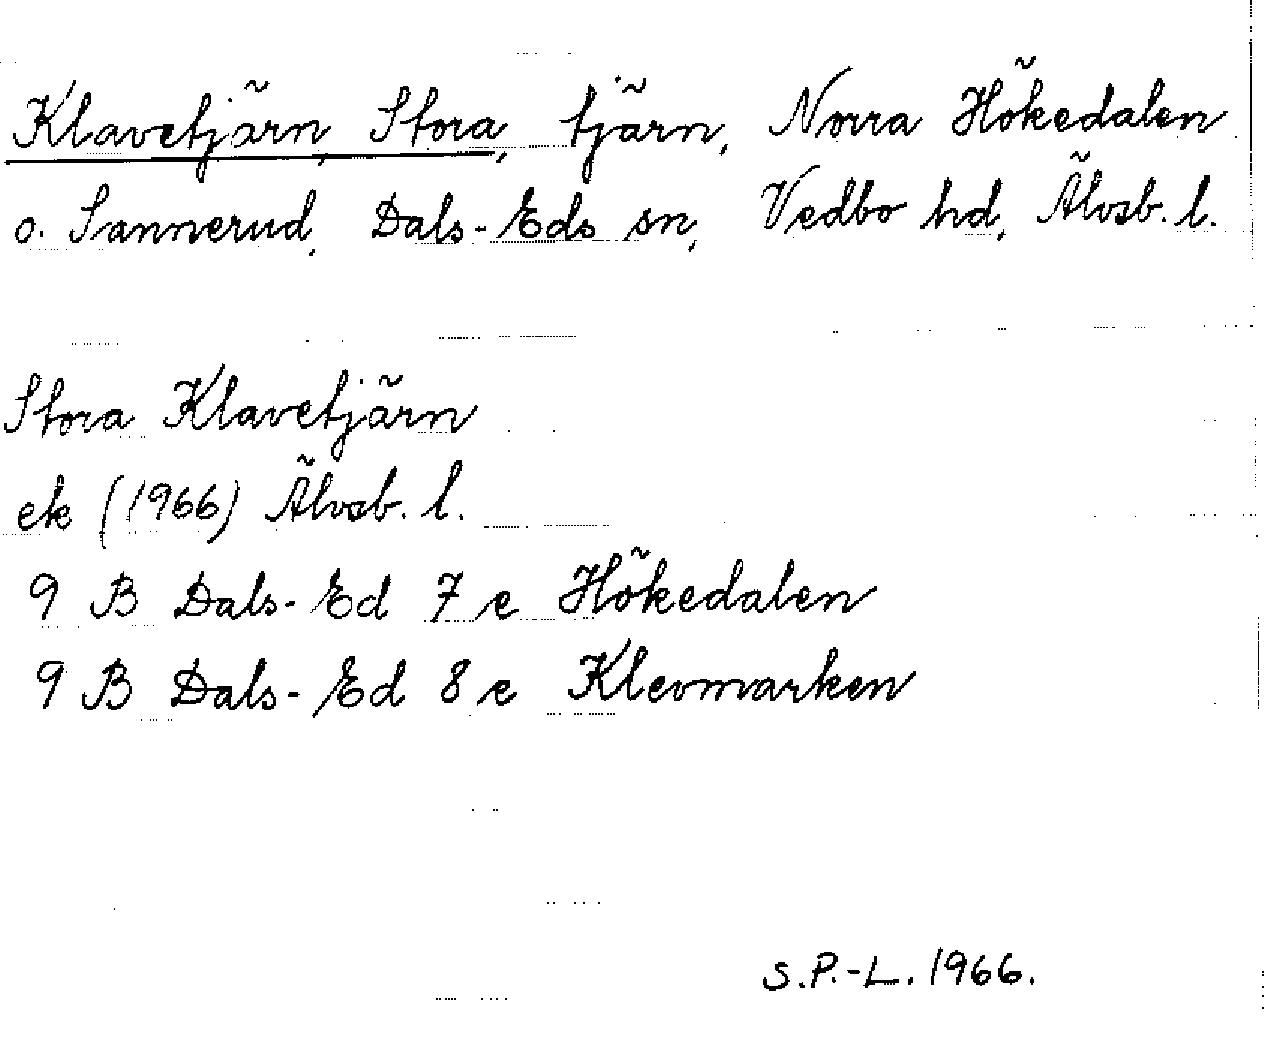 Klavetjärn, Stora, tjärn, Norra Hökedalen
o. Sannerud, Dals-Eds sn, Vedbo hd, Älvsb. l.
Stora Klavetjärn
ek (1966) Älvsb. l.
9 B Dals-Ed 7 e Hökedalen
9 B Dals-Ed 8 e Klevmarken
S.P.-L. 1966.